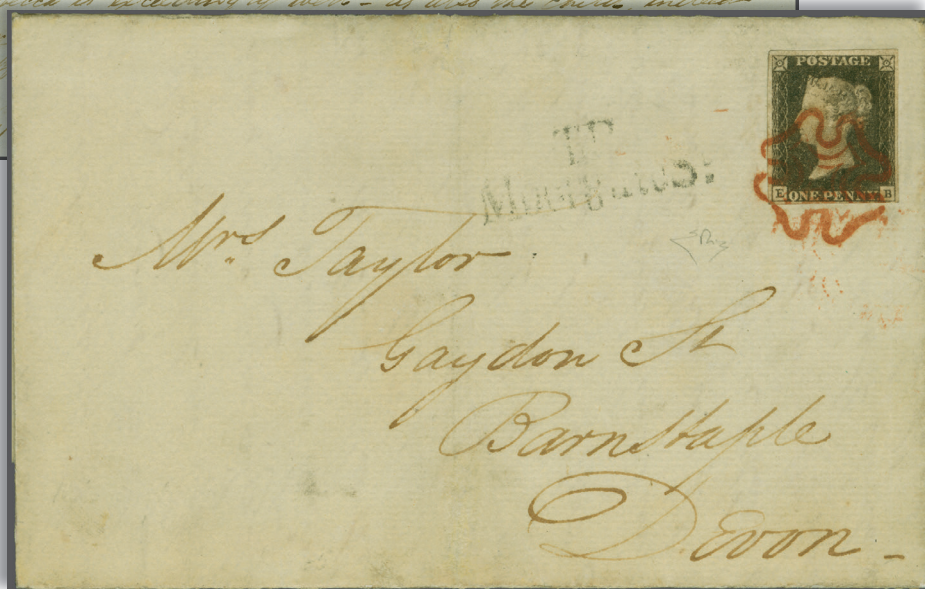 POSTAGE
E ONE PENNY B
T.P
Moorgate St
Mrs Taylor
Gaydon St
Barnstaple
Devon